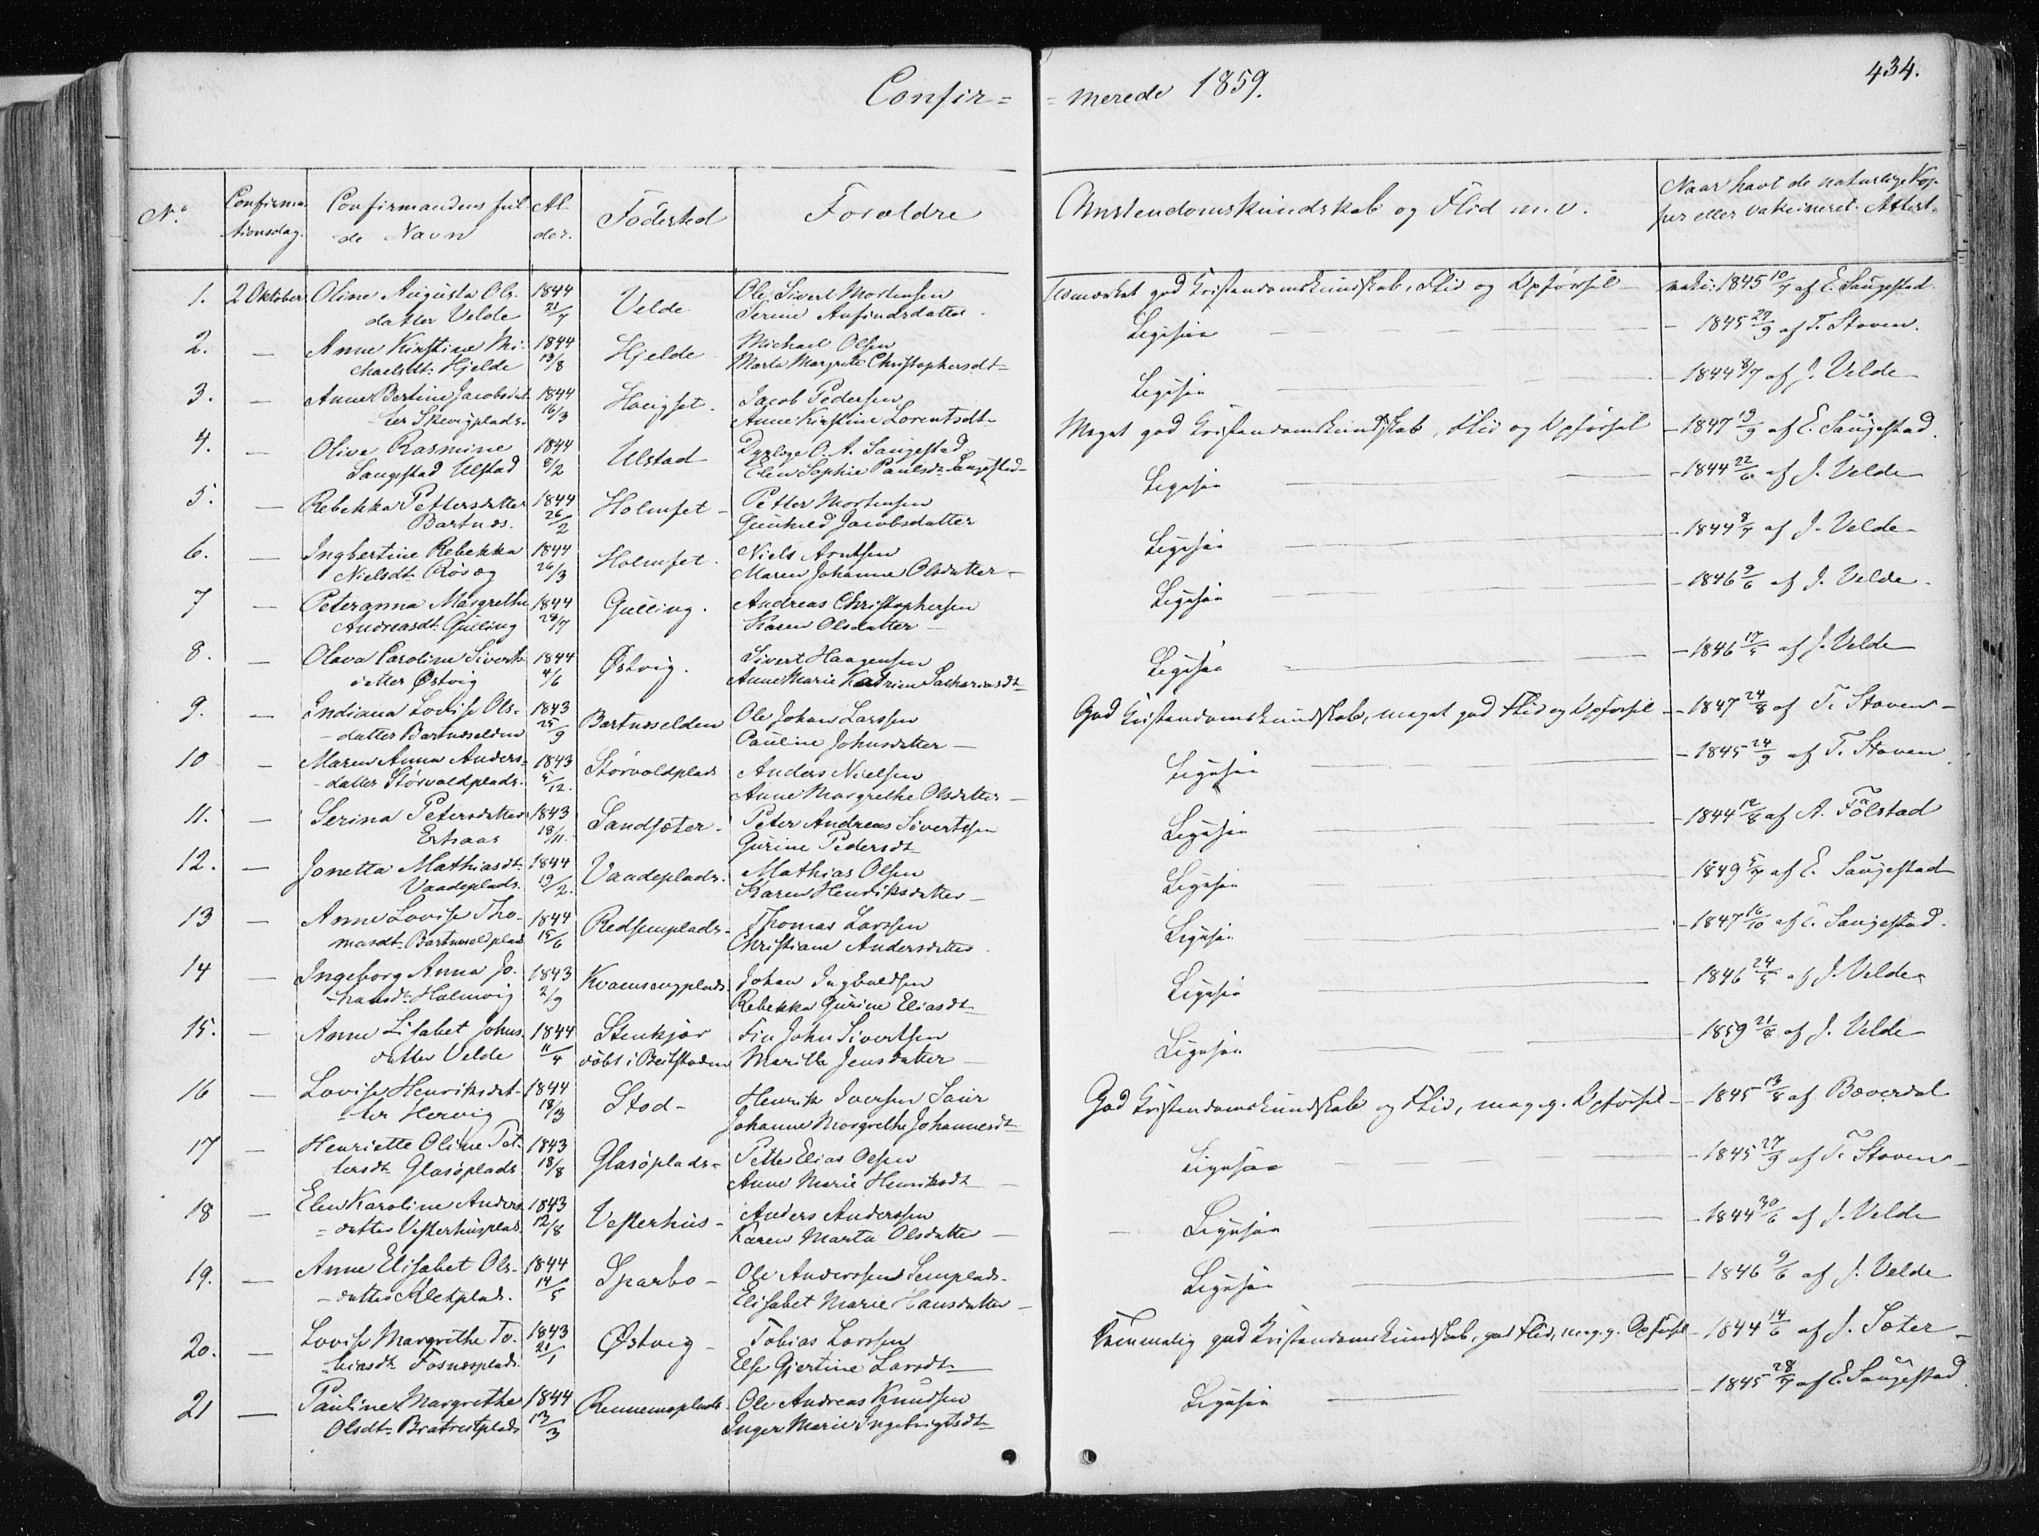 434.
Confir= =merede 1859.
N.º Confirma Confirmandens ful Al Fødested Forældre Christendomskundskab og Flid m.v. Naar havt de naturlige Kop-
tionsdag. de Navn der. per eller vakcineret. Attest.
1. 2 Oktober Oline Augusta Ols- 1844 Velde Ole Sivert Mortensen Udmærket god Kristendomskundskab, Flid og Opførsel vakc: 1845 10/7 af E. Saugestad
datter Velde 21/7 Serine Anfindsdatter
2. — Anne Kirstine Mi- 1844 Hjelde Michael Olsen Ligesaa — 1845 27/9 af T. Stoven.
chaelsdt: Hjelde 13/8 Marta Margrete Christophersdt
3. — Anne Bertine Jacobsdat 1844 Høigset Jacob Pedersen Ligesaa — 1844 8/7 af J. Velde
ter Skevigplads. 16/3 Anne Kirstine Lorentsdt
4. — Olive Rasmine 1844 Ulstad O. A. Saugestad Meget god Kristendomskundskab, Flid og Opførsel — 1847 19/9 af E. Saugestad.
Saugestad Ulstad 8/2 Elen Sophie Paulsdt Saugestad
5. — Rebekka Pettersdatter 1844 Holmset Petter Mortensen Ligesaa — 1844 22/6 af J. Velde
Bartnes. 26/2 Gunhild Jacobsdatter
6. — Ingbertine Rebekka 1844 Holmset. Niels Arntsen Ligesaa — 1844 8/7 af J. Velde
Nielsdt: Røsæg 26/3 Maren Johanna Olsdatter
7 — Peteranna Margrethe 1844 Gulling. Andreas Christophersen Ligesaa — 1846 9/6 af J. Velde
Andreasdt: Gulling 28/7 Karen Olsdatter
8. — Olava Caroline Siverts 1844 Østvig. Sivert Haagensen Ligesaa — 1846 17/5 af J. Velde
datter Østvig 4/6 Anne Marie Katrine Sachariasdt
9. — Indiana Lovise Ols- 1843 Bartnesselden Ole Johan Larssen God Kristendomskundskab, meget god Flid og Opførsel — 1847 24/8 af T. Stoven
datter Bartnesselden 25/9 Pauline Johnsdatter
10 — Maren Anna Anders- 1843 Størvoldplads Anders Nielsen Ligesaa — 1845 24/9 af T. Stoven
datter Størvoldplads. 5/12. Anne Margrethe Olsdatter
11. — Serina Petersdatter 1843 Sandsæter Peter Andreas Sivertsen Ligesaa — 1844 12/8 af A. Følstad
Ertsaas 18/11. Gurine Pedersdt
12. — Jonetta Mathiasdt: 1844 Vaadeplads. Mathias Olsen Ligesaa — 1849 5/7 af E. Saugestad
Vaadeplads. 19/2. Karen Henriksdatter
13 — Anne Lovise Tho- 1844 Redsemplads Thomas Larssen Ligesaa — 1847 16/10 af E. Saugestad.
masdt: Bartneseldplads 15/6 Christiane Andersdatter
14 — Ingeborg Anna Jo- 1843 Kvamsengplads Johan Ingvaldsen Ligesaa — 1846 24/5 af J. Velde
hansdt: Holmvig 2/9 Rebekka Gurine Eliasdt
15. — Anne Lisabet Johns- 1844 Stenkjær Fin John Sivertsen Ligesaa — 1859 21/8 af J. Velde
datter Velde 11/4 døbt i Beitstaden Maritta Jensdatter
16 — Lovise Henriksdat- 1844 Stod Henrik Iversen Saur God Kristendomskundskab og Flid, meg. g. Opførsel — 1845 13/8 af Bæverdal
ter Hervig 18/3 Johanne Margrethe Johannesdt
17 — Henriette Oline Pet- 1843 Glasøplads Petter Elias Olsen Ligesaa — 1845 27/9 af T. Stoven
tersdt: Glasøplads 18/8 Anne Marie Henriksdt
18 — Elen Karoline Anders 1843 Vesterhus Anders Anderssen Ligesaa — 1844 30/6 af J. Velde
datter Vesterhusplads 12/8 Karen Marta Olsdatter
19. — Anne Elisabet Ols- 1844 Sparbo Ole Anderssen Semplads Ligesaa — 1846 9/6 af J. Velde
datter 14/5 Elisabet Marie Hansdatter
20. — Lovise Margrethe To- 1843 Østvig Tobias Larssen Temmelig god Kristendomskundskab, god Flid, meg. g. Opførsel — 1844 14/6 af J. Sæter
biasdt: Fosnesplads. 21/1 Else Gjertine Larsdt
21 — Pauline Margrethe 1844 Rennemsplads Ole Andreas Knudsen Ligesaa — 1845 28/7 af E. Saugestad.
Olsdt: Bratreitplads 13/3 Inger Marie Ingebrigtsdt